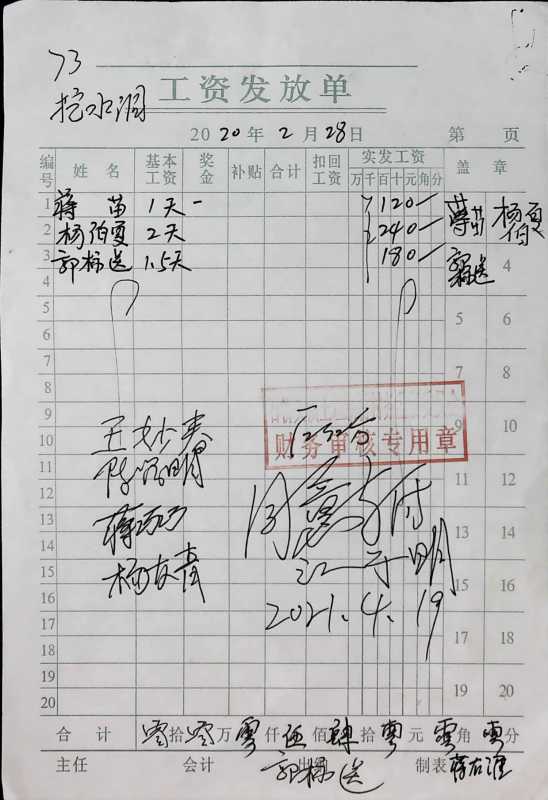 73
挖水泗
工资发放单
2020年2月28日 第 页
编号 姓名 基本工资 奖金 补贴 合计 扣回工资 实发工资 万千百十元角分 盖章
1 蒋苗 1天 120
2 杨伯夏 2天 240 蒋苗 杨伯夏
3 郭柿送 1.5天 180
4 4
5 5 6
6
7 7 8
8
9 9 10
财务审核专用章
10 王妙春
11 11 12
12 同意支付
13 蒋巧巧 13 14
14 杨友清
15 江子明 15 16
16 2021.4.19
17 17 18
18
19 19 20
20
合计 零拾零万零仟伍佰肆拾零元零角零分
主任 会计 出纳 郭柿送 制表